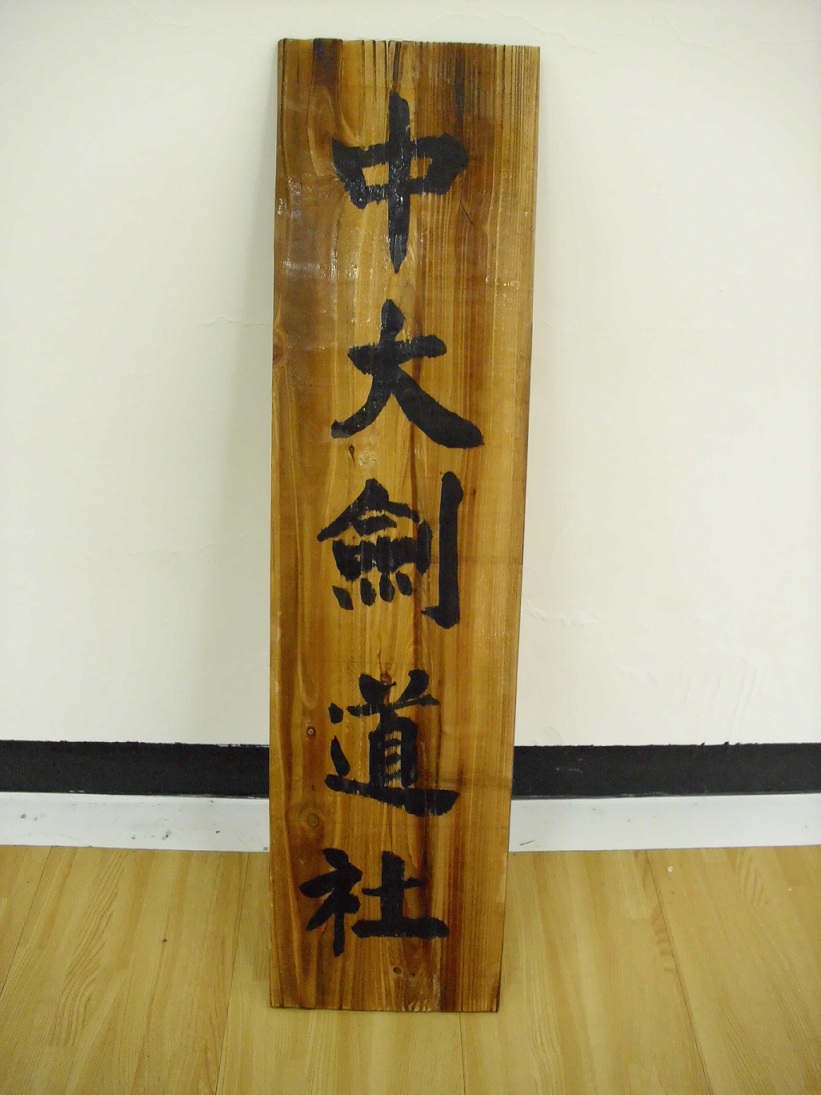 中大劍道社